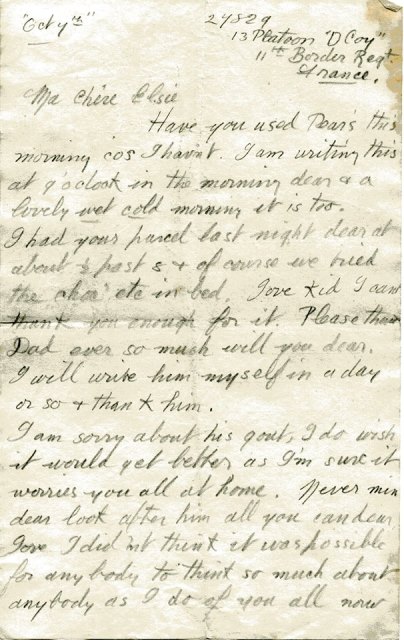 "Oct 4th"
27829
13 Platoon "D Coy"
11th Border Regt.
France.
Ma Chère Elsie
Have you used Pears this
morning cos I havn't. I am writing this
at 9 o'clock in the morning dear & a
lovely wet cold morning it is too.
I had your parcel last night dear at
about ½ past 8 & of course we tried
the choc etc in bed. Jove Kid I cant
thank you enough for it. Please thank
Dad ever so much will you dear.
I will write him myself in a day
or so & thank him.
I am sorry about his gout, I do wish
it would get better as I'm sure it
worries you all at home. Never min
dear look after him all you can dear
Jove I did'nt think it was possible
for anybody to think so much about
anybody as I do of you all now